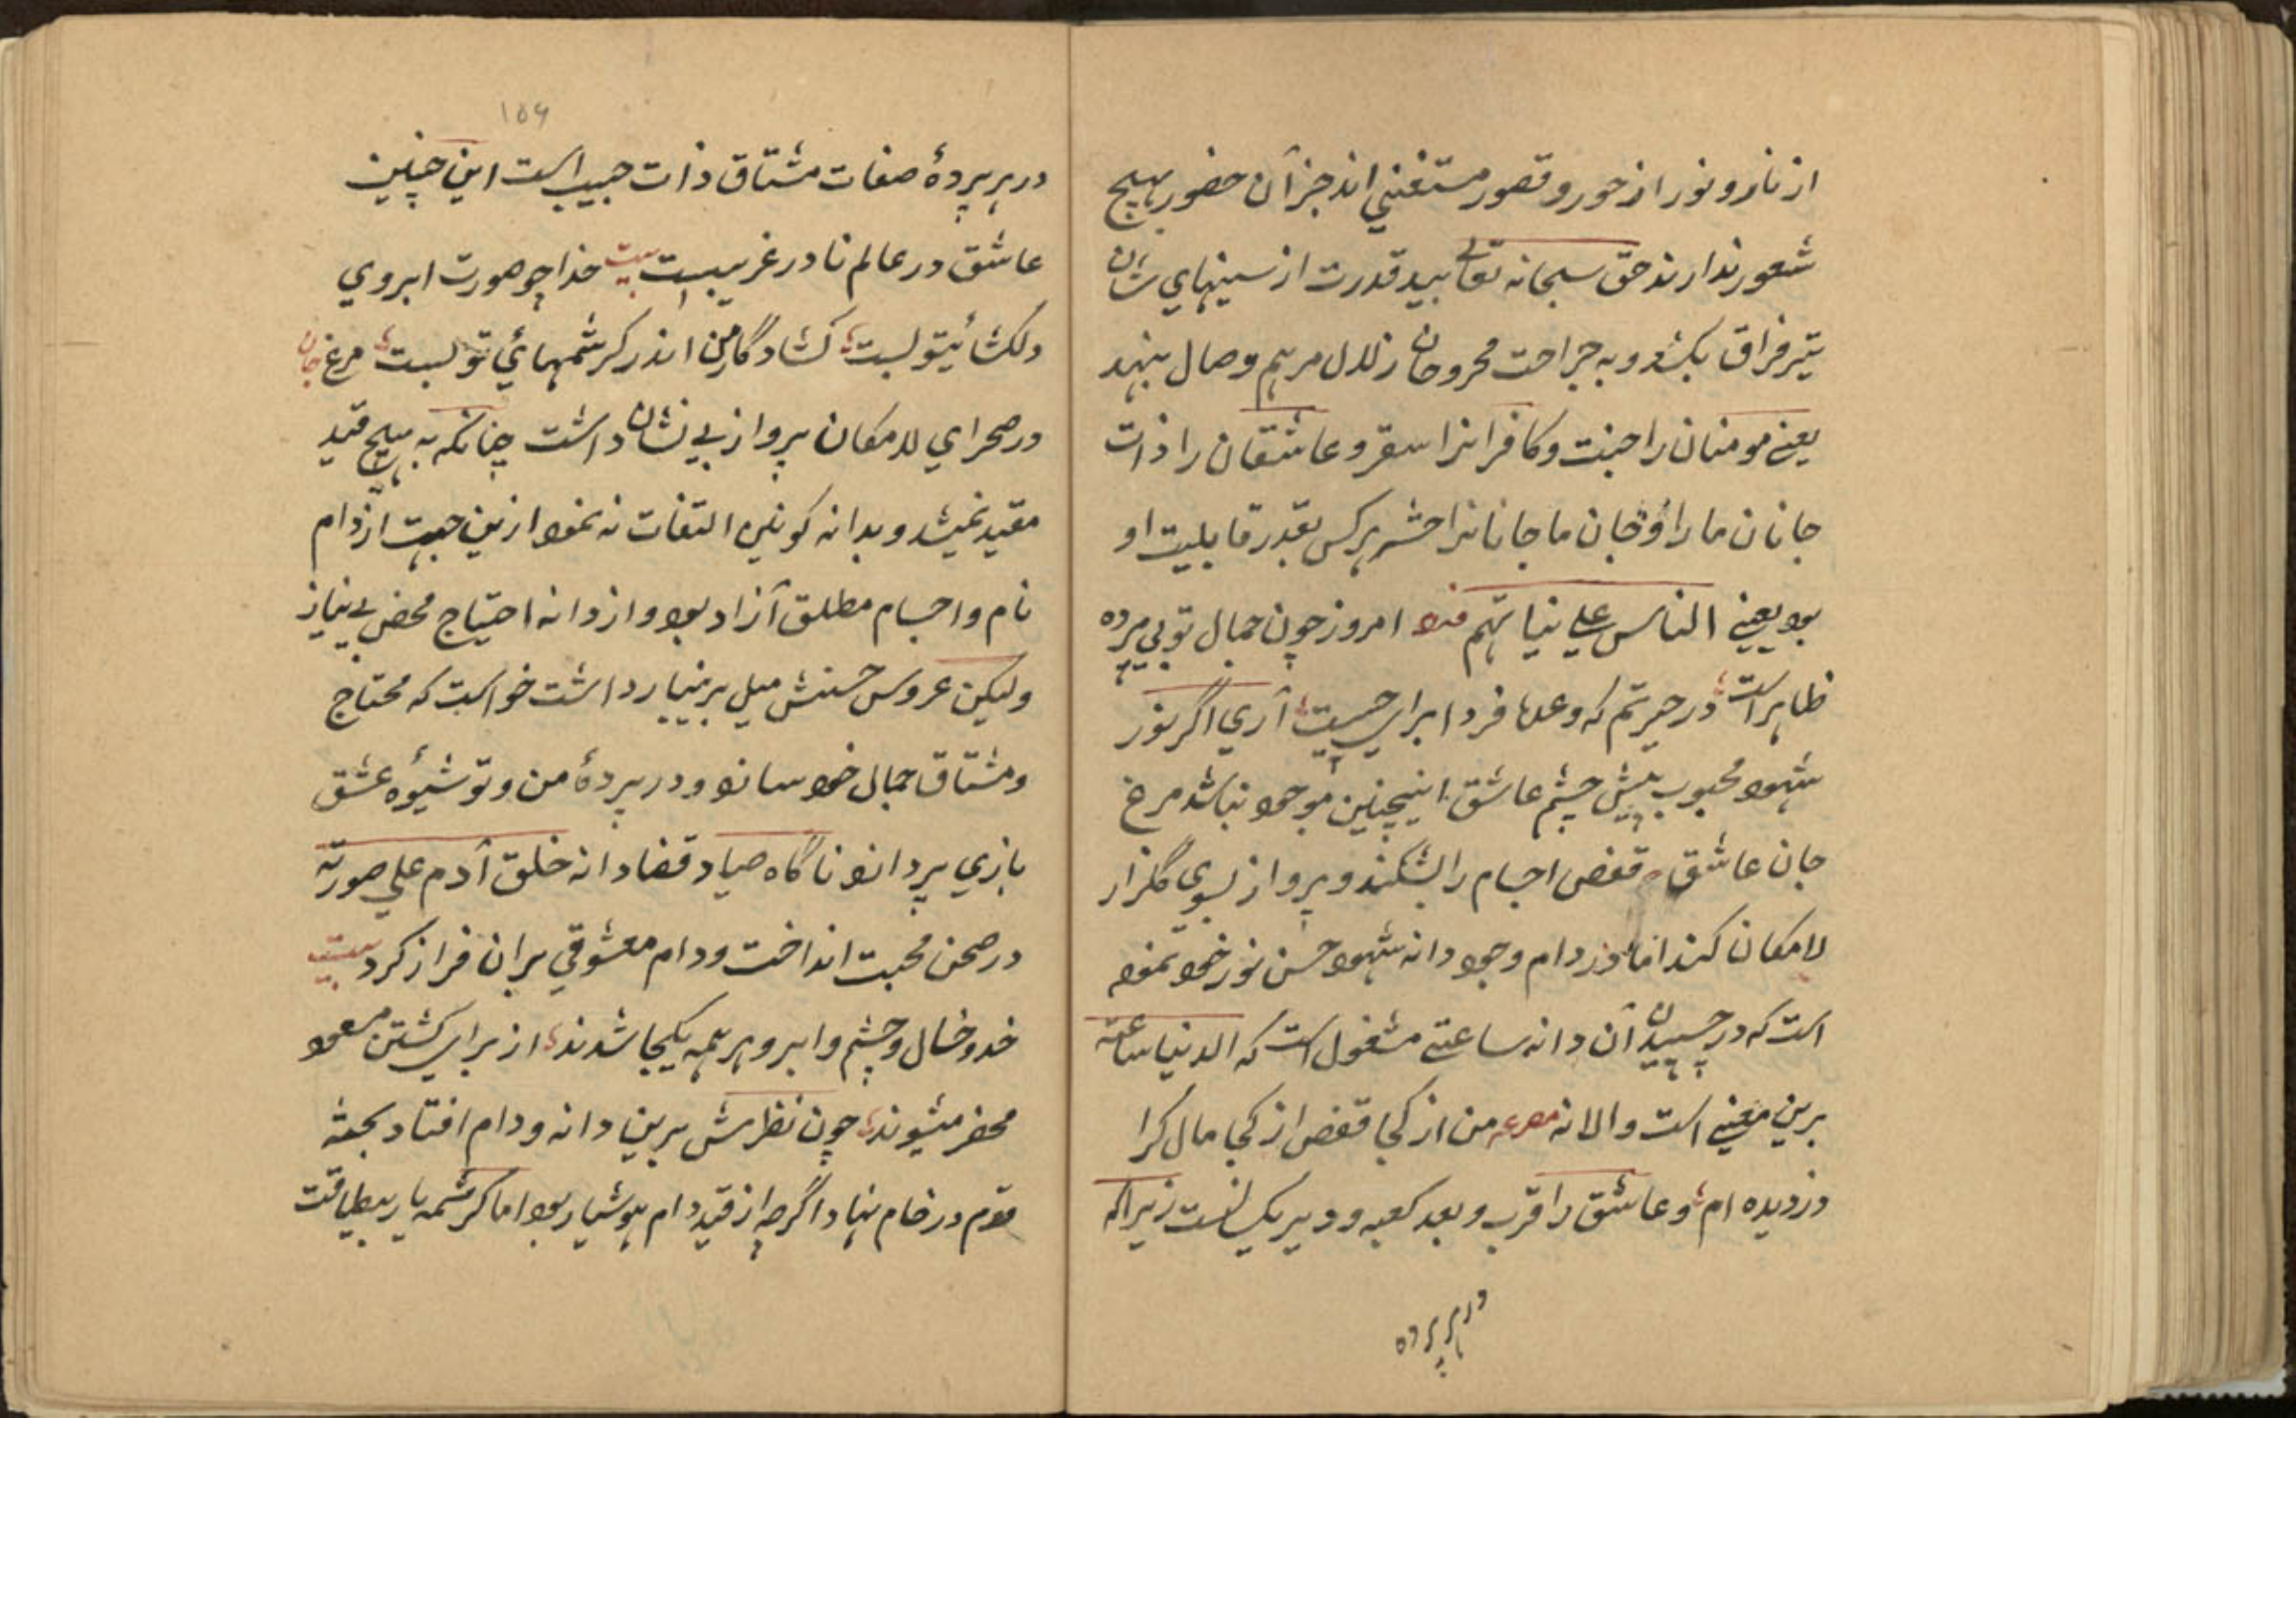 از نار و نور از حور و قصور مستغنی اند جز آن حضور بهیچ
شعور ندارند حق سبحانه تعالی بید قدرت از سینهای شان
تیر فراق بکشد و به جراحت مجروحان زلال مرهم وصال بنهد
یعنی مومنان را جنت و کافرانرا سقر و عاشقان را ذات
جانان ما را و جان ما جانانرا حشر هر کس بقدر قابلیت او
بود یعنی الناس علی نیاتهم فرد امروز چون جمال تو بی پرده
ظاهر است در حیرتم که وعدهٔ فردا برای چیست آری اگر نور
شهود محبوب پیش چشم عاشق اینچنین موجود نباشد مرغ
جان عاشق قفص اجسام را بشکند و پرواز بسوی گلزار
لامکان کند اما در دام وجود دانه شهود حسن نور خود نموده
است که در چسپیدن آن دانه ساعتی مشغول است که الدنیا ساعة
برین معنی است والا نه مصرعه من از کجا قفص از کجا مال کرا
دزدیده ام و عاشق را قرب و بعد کعبه و دیر یکیست زیرا که
در هر پرده
۱۵۶
در هر پردهٔ صفات مشتاق ذات حبیب است این چنین
عاشق در عالم نادر غریبست بیت خدا چو صورت ابروی
دلکشای تو بست کشاد کار من اندر کرشمهای تو بست مرغ جان
در صحرای لامکان پرواز بی نشان داشت چنانکه به هیچ قید
مقید نمیشد و بدانه کونین التفات نه نمود ازین جهت از دام
نام و اجسام مطلق آزاد بود و از دانه احتیاج محض بی نیاز
ولیکن عروس حسنش میل بر نیاز داشت خواست که محتاج
و مشتاق جمال خود سازد و در پردهٔ من و تو شیوه عشق
بازی پردازد ناگاه صیاد قضا دانه خلق آدم علی صورته
در صحن محبت انداخت و دام معشوقی بران فراز کرد بیت
خد و خال و چشم و ابرو هر همه یکجا شدند از برای کشتن مسعود
محضر میشوند چون نظرش برین دانه و دام افتاد بجعبه
قدم در دام نهاد اگرچه از قید دام هوشیار بود اما کرشمه یار بیطاقت